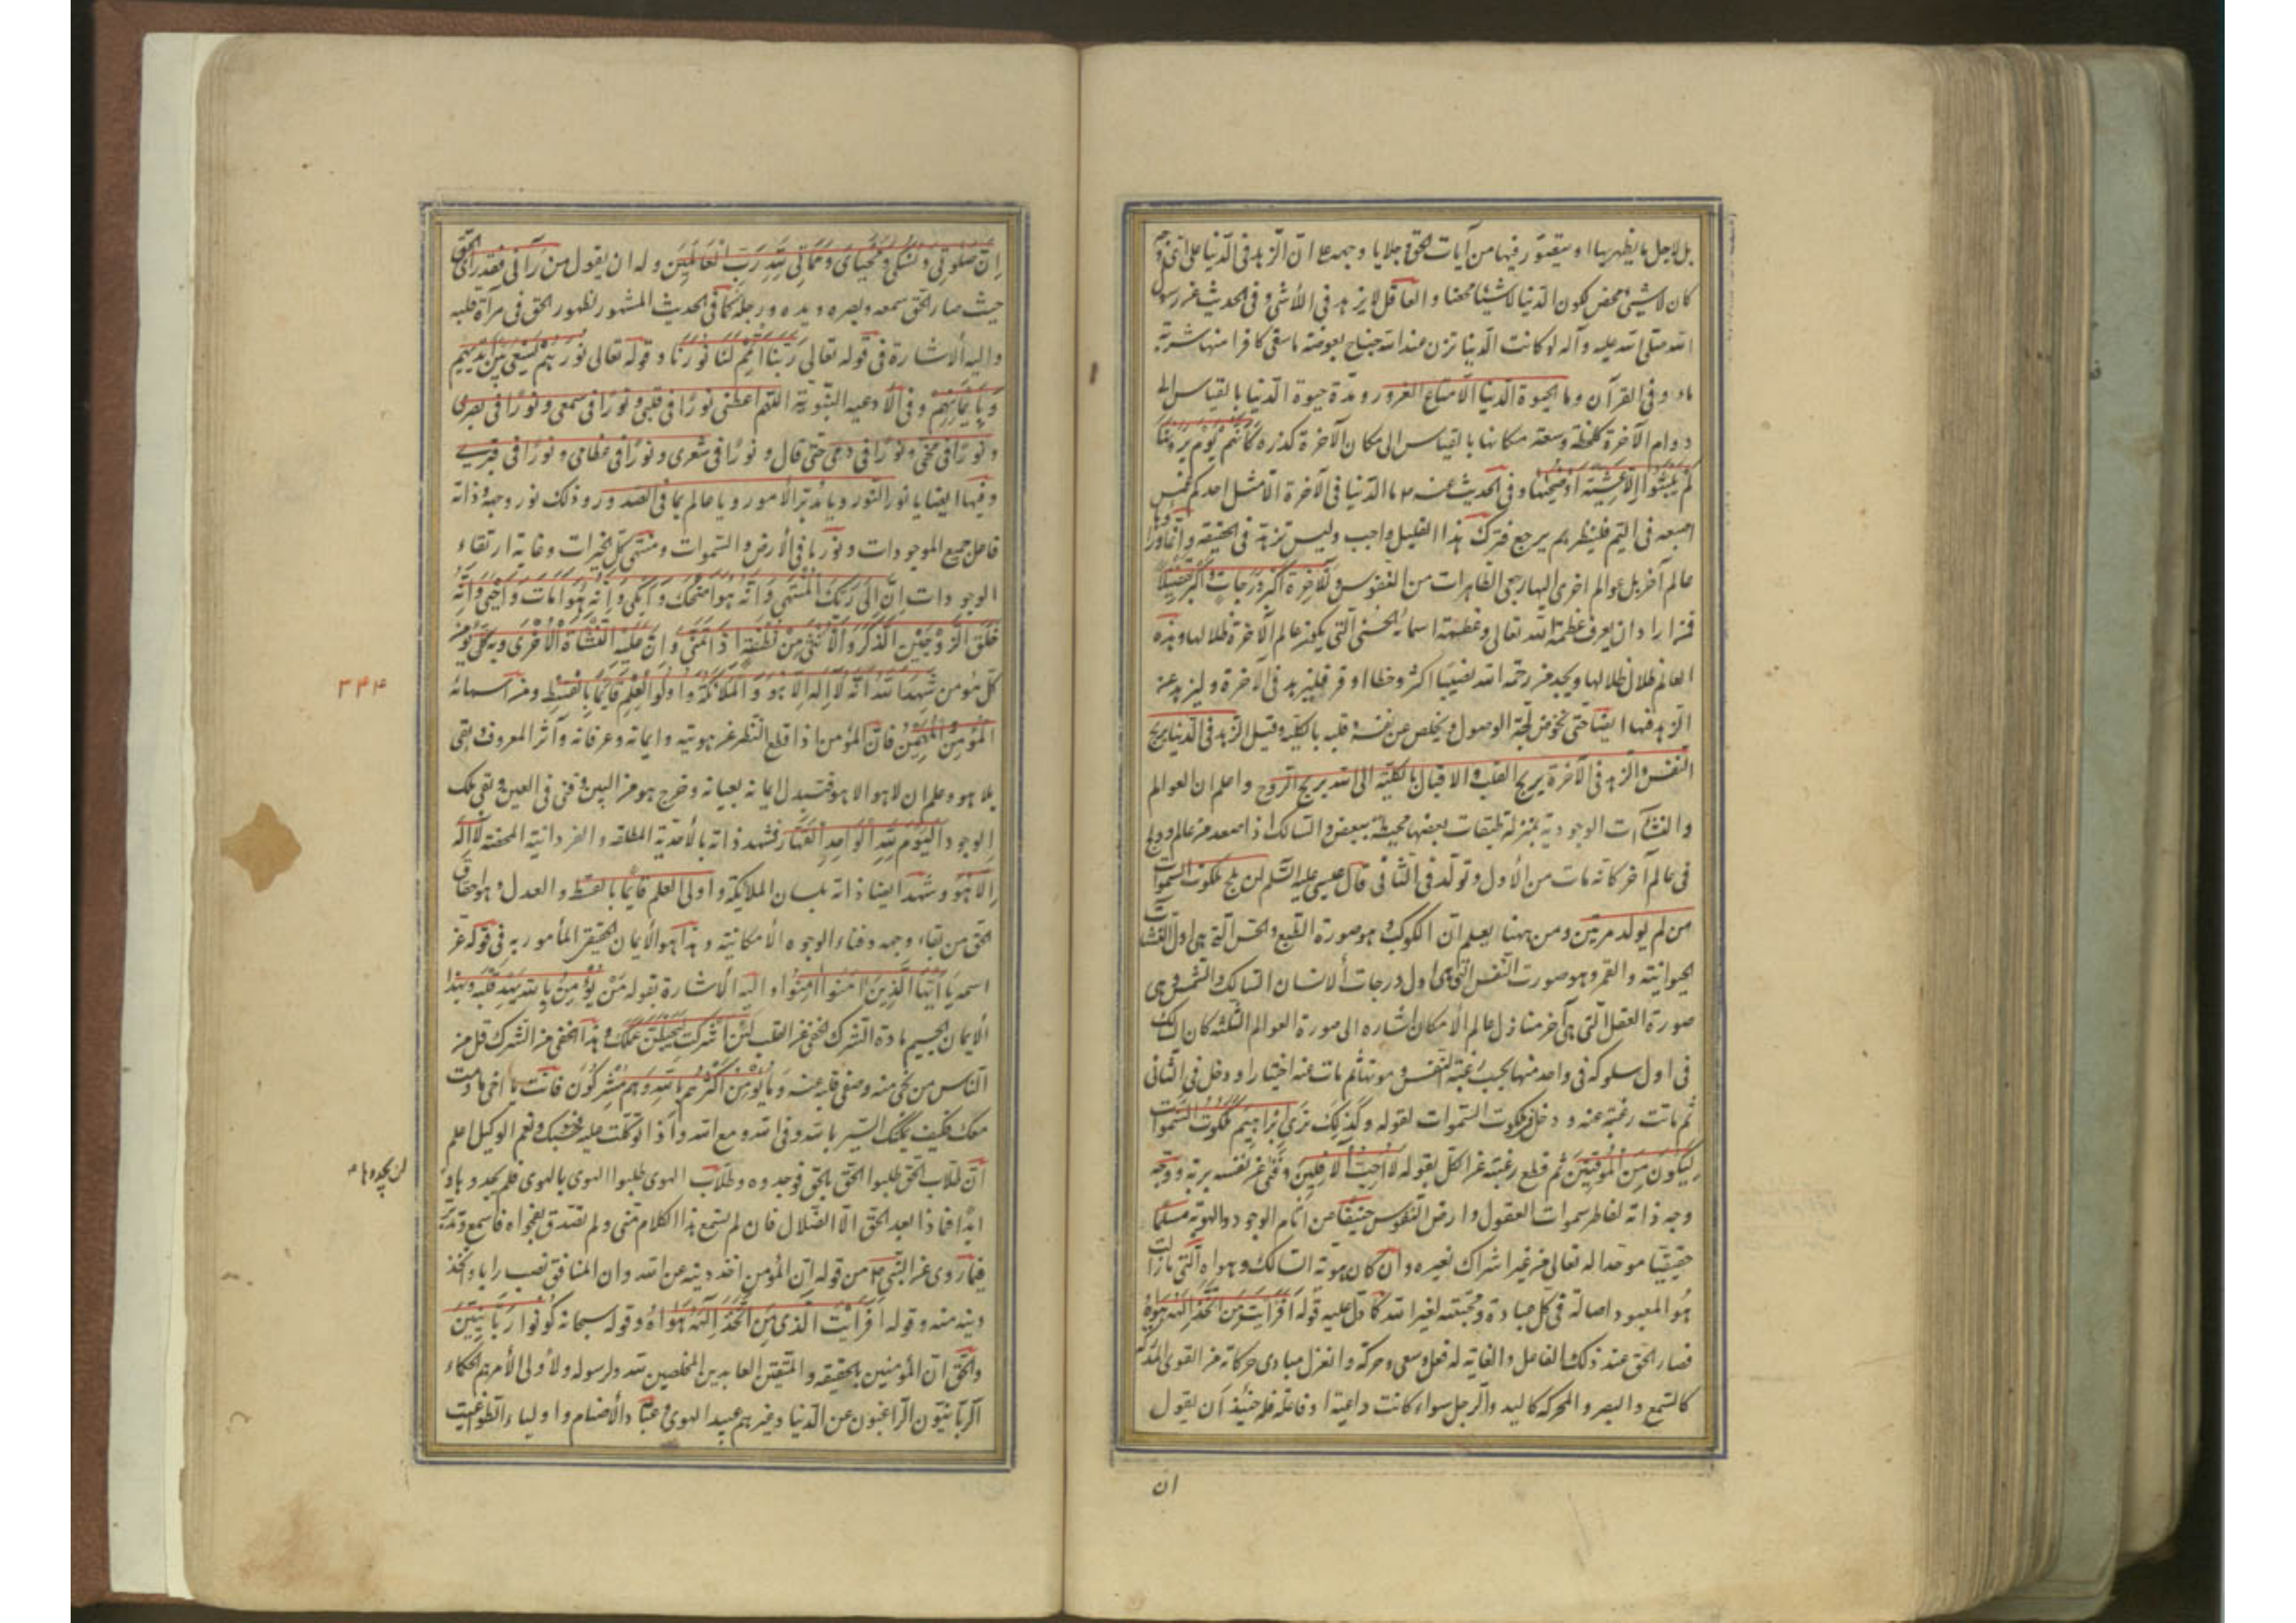 بل لاجل ما يظهر بها او يتصور فيها من آيات الحق و جلايا وجهه على ان الزهد فى الدنيا على اى وجه
كان لا شىء محض لكون الدنيا لا شيئا محضا و العاقل لا يزهد فى اللاشى و فى الحديث عن رسول
الله صلى الله عليه و آله لو كانت الدنيا تزن عند الله جناح بعوضة ما سقى كافرا منها شربة
ماء و فى القرآن و ما الحيوة الدنيا الا متاع الغرور و مدة حيوة الدنيا بالقياس الى
دوام الآخرة كلحظة وسعة مكانها بالقياس الى مكان الآخرة كذره كَأَنَّهُمْ يَوْمَ يَرَوْنَهَا
لَمْ يَلْبَثُوا إِلَّا عَشِيَّةً أَوْ ضُحَيٰهَا و فى الحديث عنه ص ما الدنيا فى الآخرة الا مثل احدكم غمس
اصبعه فى اليم فلينظر بم يرجع فترك هذا القليل واجب و ليس تزهد فى الحقيقه و انما وراؤها
عالم آخر بل عوالم اخرى اليها رجعى الطاهرات من النفوس و للآخرة اكبر درجات و اكبر تفضيلا
فمن اراد ان يعرف عظمة الله تعالى و عظمة اسمائه الحسنى التى يكون عالم الآخرة ظلالها و هذه
العالم ظلال ظلالها و يجد من رحمة الله نصيبا اكثر و حظا اوفر فليزهد فى الآخرة و ليزهد عنه
الزهد فيها ايضا حتى يخوض لجة الوصول و يخلص عن نفسه و قلبه بالكلية و قيل الزهد فى الدنيا يريح
النفس و الزهد فى الآخرة يريح القلب و الاقبال بالكلية الى الله يريح الروح و اعلم ان العوالم
و النشآت الوجودية بمنزلة طبقات بعضها محيطة ببعض و السالك اذا صعد من عالم و ولج
فى عالم آخر كانه مات من الأول و تولد فى الثانى قال عيسى عليه السلم لن يلج ملكوت السموات
من لم يولد مرتين و من ههنا يعلم ان الكوكب و هو صورة الطبع و الحس التى هى اول النشآت
الحيوانية و القمر و هو صورت النفس التى هى اول درجات الانسان السالك و الشمس و هى
صورة العقل التى هى آخر منازل عالم الأمكان اشاره الى صورة العوالم الثلثه كان السالك
فى اول سلوكه فى واحد منها بحسب رغبة النفس و موتها ثم مات عنه اختيارا و دخل فى الثانى
ثم ماتت رغبته عنه و دخل فى ملكوت السموات لقوله و كذلك نرى ابراهيم ملكوت السموات
لِيَكُونَ مِنَ الْمُوقِنِينَ ثم قطع رغبته عن الكل بقوله لا أُحِبُّ الْآفِلِينَ و فنى عن نفسه بربه و وجه
وجه ذاته لفاطر سموات العقول و ارض النفوس حنيفا عن انام الوجود و الهوية مسلما
حقيقيا موحدا له تعالى من غير اشراك لغيره و ان كان هوية السالك و هواه التى ما زالت
هو المعبود اصالة فى كل عبادة و محبته لغير الله كما دل عليه قوله أَفَرَأَيْتَ مَنِ اتَّخَذَ إِلٰهَهُ هَوٰيهُ
فصار الحق عند ذلك الفاعل و الغاية له فعل و سعى و حركة و انعزل مبادى حركاته من القوى المدركة
كالسمع و البصر و المحركه كاليد و الرجل سواء كانت داعية او فاعلة فله حينئذ أن يقول
ان
إِنَّ صَلٰوتِي وَنُسُكِي وَمَحْيَايَ وَمَمَاتِي لِلّٰهِ رَبِّ الْعَالَمِينَ و له ان يقول من رآنى فقد رأى الحق
حيث صار الحق سمعه و بصره و يده و رجله كما فى الحديث المشهور لظهور الحق فى مرآة قلبه
و اليه الأشارة فى قوله تعالى رَبَّنَا أَتْمِمْ لَنَا نُورَنَا و قوله تعالى نُورُهُمْ يَسْعَى بَيْنَ أَيْدِيهِمْ
وَبِأَيْمَانِهِمْ و فى الأدعيه النبوية اللهم اعطنى نورًا فى قلبى و نورًا فى سمعى و نورًا فى بصرى
و نورًا فى مخى و نورًا فى دمى حتى قال و نورًا فى شعرى و نورًا فى عظامى و نورًا فى قبرى
و فيها ايضا يا نور النور و يا مدبر الأمور و يا عالم بما فى الصدور و ذلك نور وجهه و ذاته
فاعل جميع الموجودات و نورها فى الأرض و السموات و منتهى كل الخيرات و غاية ارتقاء
الوجودات إِنَّ إِلَى رَبِّكَ الْمُنْتَهَى وَأَنَّهُ هُوَ أَضْحَكَ وَأَبْكَى وَأَنَّهُ هُوَ أَمَاتَ وَأَحْيَى وَأَنَّهُ
خَلَقَ الزَّوْجَيْنِ الذَّكَرَ وَالْأُنْثَى مِنْ نُطْفَةٍ إِذَا تُمْنَى وَأَنَّ عَلَيْهِ النَّشْأَةَ الْأُخْرَى و به يؤمن
كل مؤمن شَهِدَ اللهُ أَنَّهُ لَا إِلٰهَ إِلَّا هُوَ وَ الْمَلَائِكَةُ وَ أُولُوا الْعِلْمِ قَائِمًا بِالْقِسْطِ و من اسمائه
۳۴۴
الْمُؤْمِنُ الْمُهَيْمِنُ فان المؤمن اذا قطع النظر عن هويته و ايمانه و عرفانه و آثر المعروف بقى
بلا هو و علم ان لا هو الا هو فتبدل ايمانه بعيانه و خرج هو من البين و فنى فى العين و بقى ملك
الوجود الْيَوْمَ لِلّٰهِ الْوَاحِدِ الْقَهَّارِ فشهد ذاته بالأحدية المطلقه و الفردانية المحضة لَا إِلٰهَ
إِلَّا هُوَ و شهد ايضا ذاته بلسان الملايكة و اولى العلم قائما بالقسط و العدل و هو احقاق
الحق من بقاء وجهه و فناء الوجوه الأمكانية و هذا هو الأيمان الحقيقى المأمور به فى قوله عز
اسمه يَا أَيُّهَا الَّذِينَ آمَنُوا آمِنُوا و اليه الأشارة بقوله مَنْ يُؤْمِنْ بِاللهِ يَهْدِ قَلْبَهُ و بهذا
الأيمان يحسم مادة الشرك الخفى عن القلب لَئِنْ أَشْرَكْتَ لَيَحْبَطَنَّ عَمَلُكَ و هذا الخفى من الشرك قل من
الناس من نجى منه و صفى قلبه عنه وَمَا يُؤْمِنُ أَكْثَرُهُمْ بِاللهِ إِلَّا وَهُمْ مُشْرِكُونَ فانت يا اخى ما دمت
معك فكيف يمكنك السير بالله و فى الله و مع الله و اذا توكلت عليه فحسبك و نعم الوكيل اعلم
ان طلاب الحق طلبوا الحق بالحق فوجدوه و طلاب الهوى طلبوا الهوى بالهوى فلم يجدوها و
لن يجدوها
ابدًا فما ذا بعد الحق الا الضلال فان لم تسمع هذا الكلام منى و لم تصدق بفحواه فاسمع و تدبر
فيما روى عن النبى ص من قوله ان المؤمن اخذ دينه عن الله و ان المنافق نصب رايا و اتخذ
دينه منه و قوله أَفَرَأَيْتَ الَّذِي مَنِ اتَّخَذَ إِلٰهَهُ هَوَاهُ و قوله سبحانه كُونُوا رَبَّانِيِّينَ
و الحق ان المؤمنين بالحقيقه و المتقين العابدين المخلصين لله و لرسوله و لأولى الأمر هم الحكماء
الربانيون الراغبون عن الدنيا و غيرهم عبيد الهوى و عباد الأصنام و اولياء الطواغيت